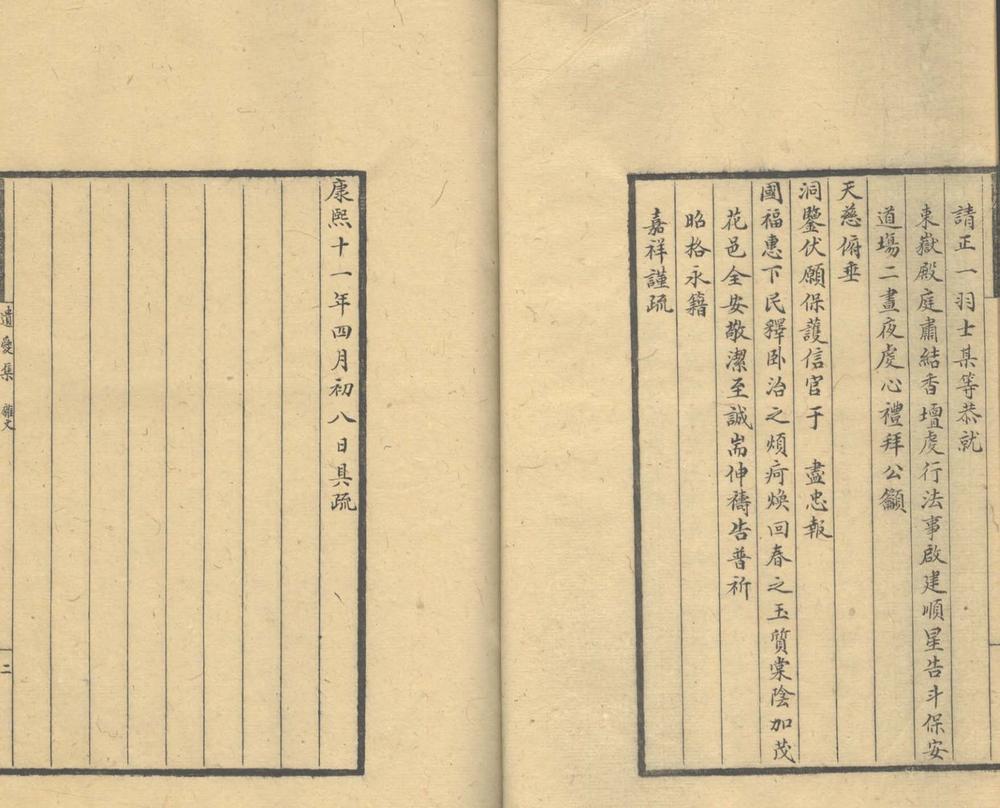 請正一羽士某等恭就
東嶽殿庭肅結香壇虔行法事啟建順星告斗保安
道場二晝夜虔心禮拜公籲
天慈俯垂
洞鑒伏願保護信官于　盡忠報
國福惠下民釋卧治之煩疴煥回春之玉質棠陰加茂
花邑全安敬潔至誠耑伸禱告普祈
昭格永籍
嘉祥謹疏
康熙十一年四月初八日具疏
遺愛集　雜文
二